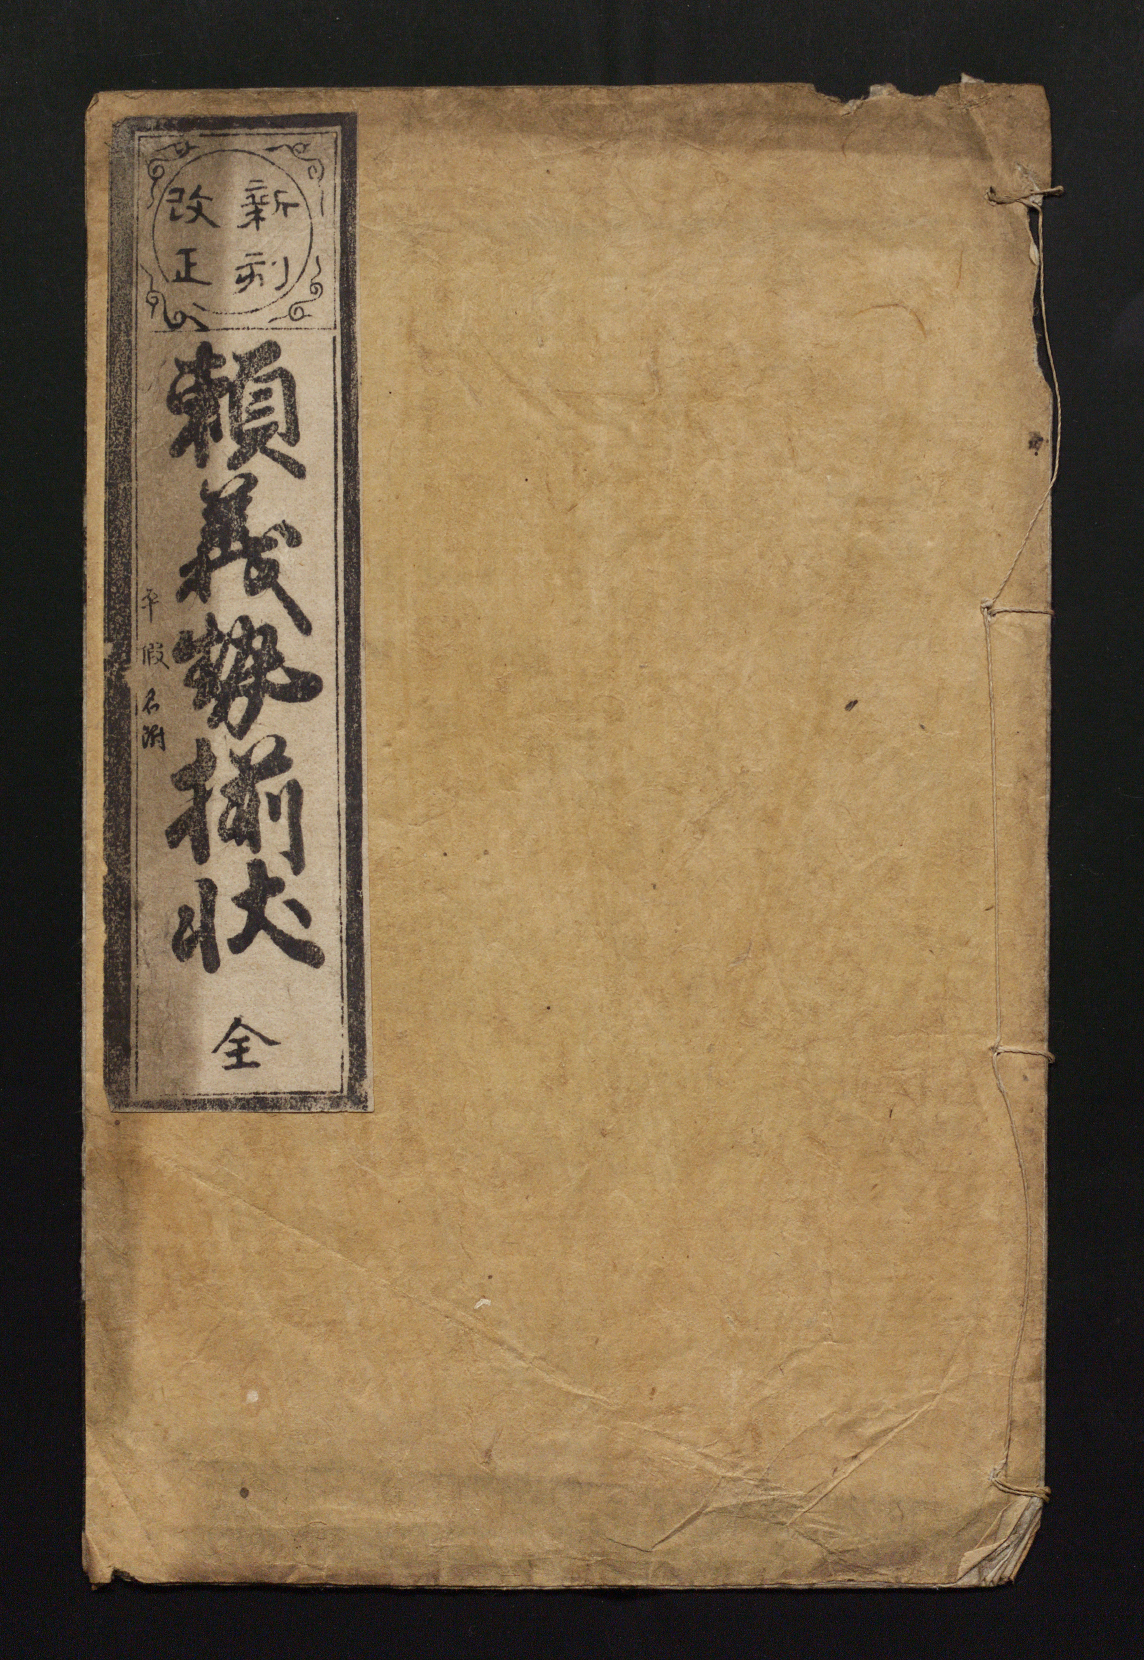 新刻
改正
頼義勢揃状
平假名附
全